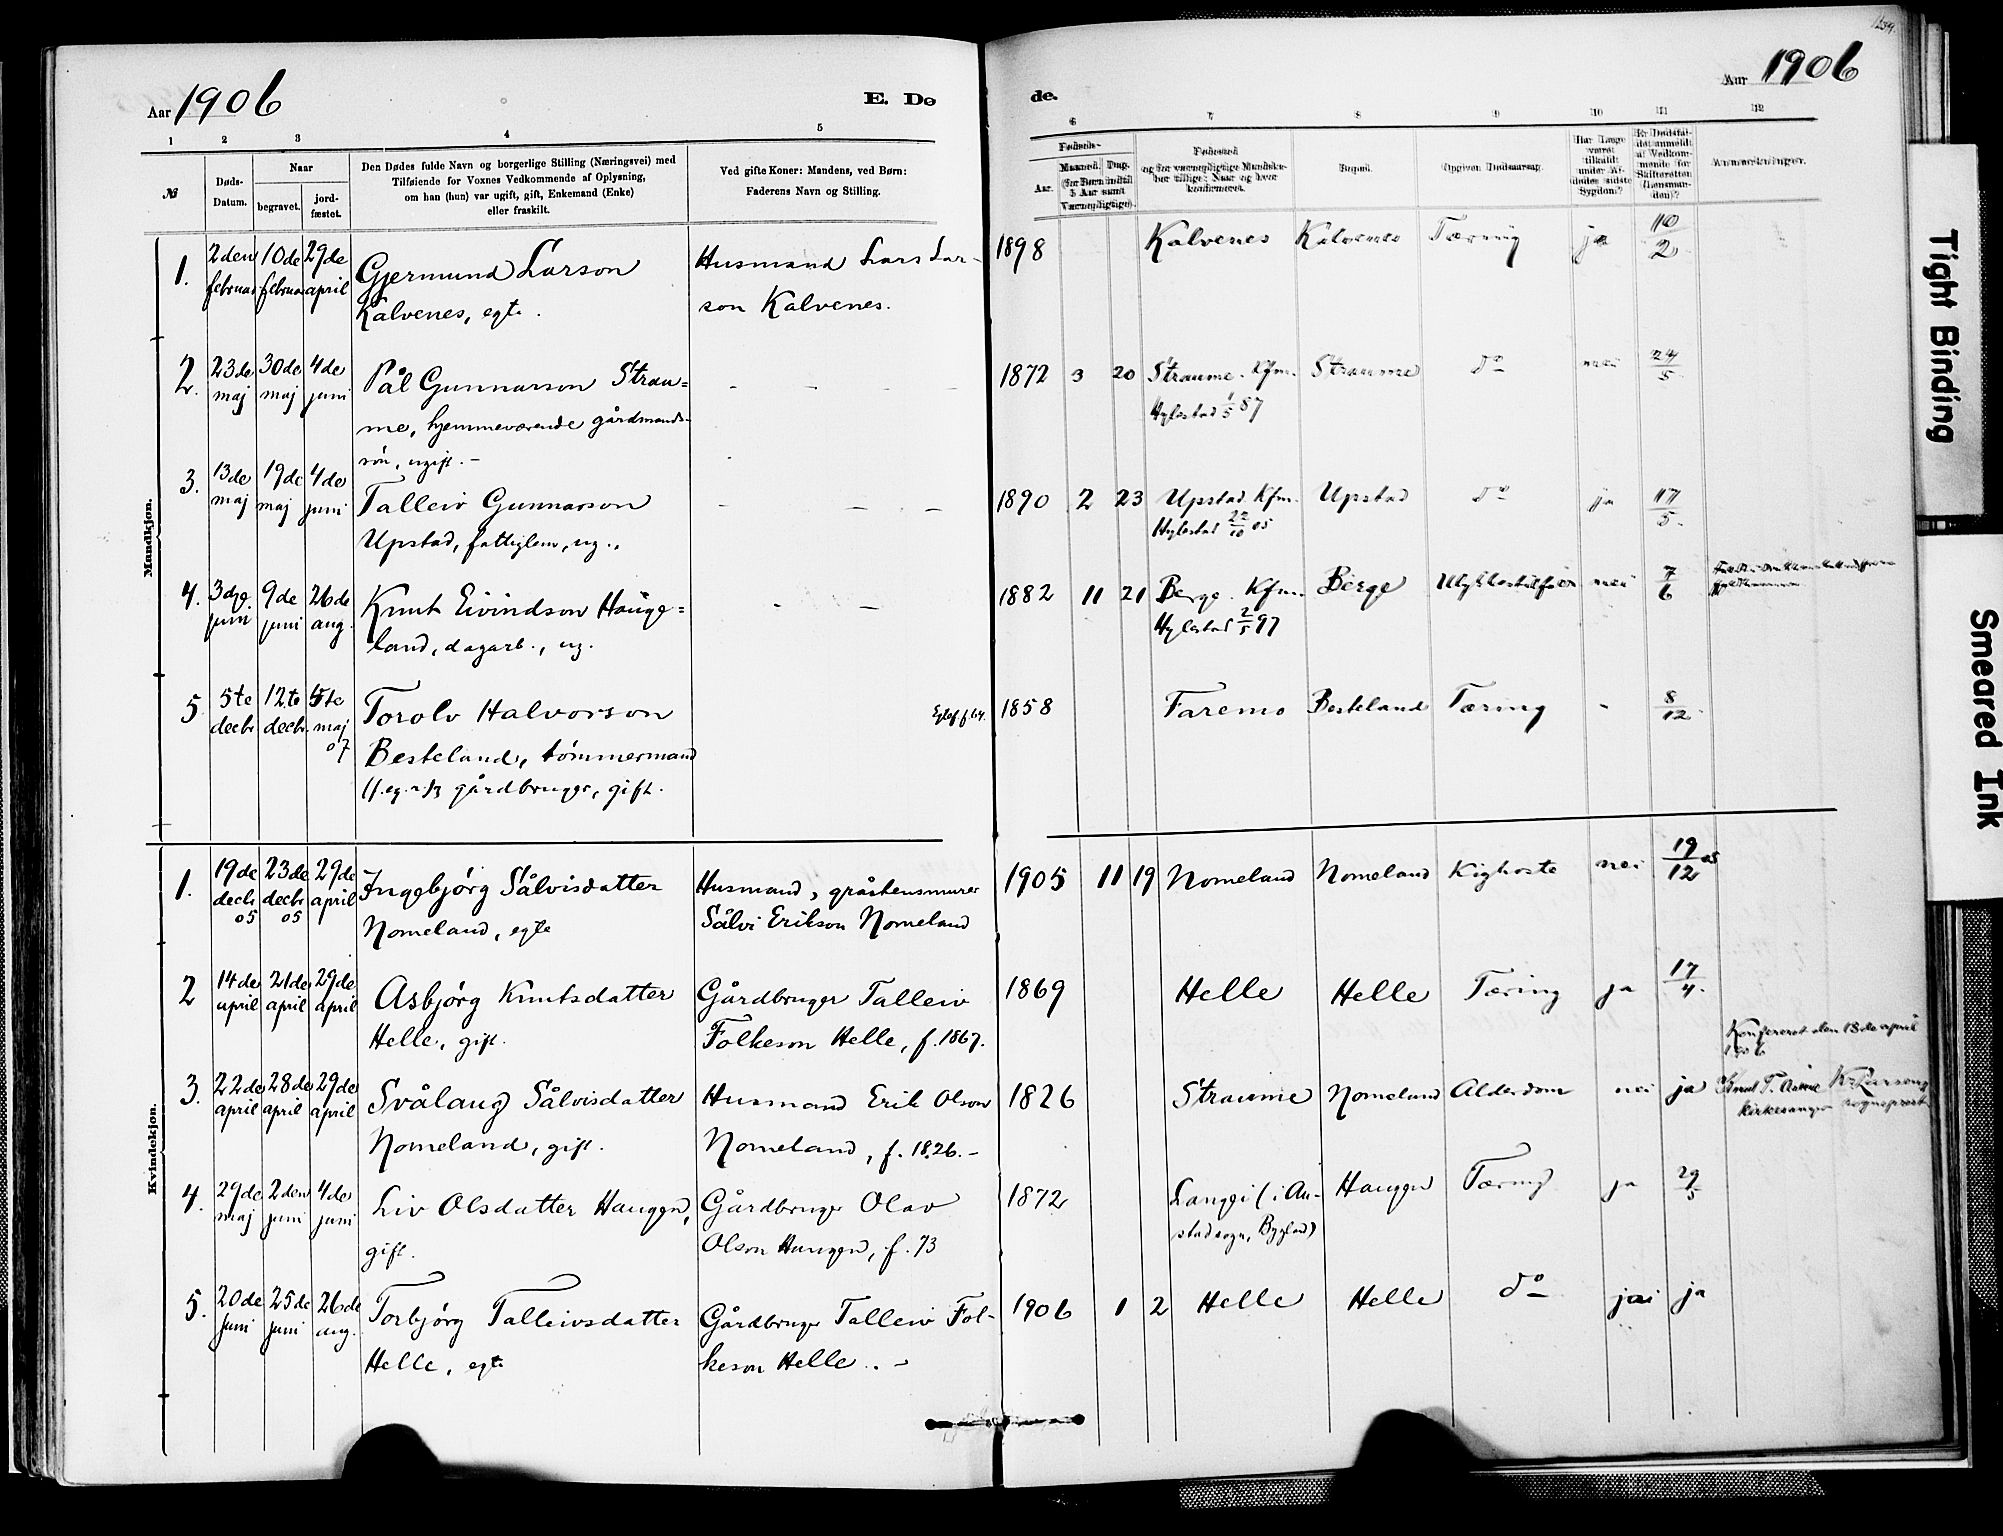 Aar 1906
E. Dø
1 2 3 4 5
№
Døds-Datum.
Naar
begravet. jordfæstet.
Den Dødes fulde Navn og borgerlige Stilling (Næringsvei) med
Tilføiende for Voxnes Vedkommende af Oplysning,
om han (hun) var ugift, gift, Enkemand (Enke)
eller fraskilt.
Ved gifte Koner: Mandens, ved Børn:
Faderens Navn og Stilling.
Mandkjøn.
1. 2den februar 10de februar 29de april
Gjermund Larson
Kalvenes, egte.
Husmand Lars Lar-
son Kalvenes.
2. 23de maj 30de maj 4de juni
Pål Gunnarson Strau=
me, hjemmeværende gårdmands-
søn, ugift. -
3. 13de maj 19de maj 4de juni
Talleiv Gunnarson
Upstad, fattiglem, ug.
4. 3dje juni 9de juni 26de aug.
Knut Eivindson Hauge=
land, dagarb., ug.
5 5te decbr 12te decbr. 5te maj 07
Torolv Halvorson
Besteland, tømmermand
gårdbruger, gift.
Kvindekjøn.
1. 19de decbr 05 23de decbr 05 29de april
Ingebjørg Sålvisdatter
Nomeland, egte
Husmand, gråstensmurer
Sålvi Erikson Nomeland
2 14de april 21de april 29de april
Asbjørg Knutsdatter
Helle, gift.
Gårdbruger Talleiv
Folkeson Helle, f. 1867.
3. 22de april 28de april 29de april
Svålaug Sålvisdatter
Nomeland, gift.
Husmand Erik Olson
Nomeland, f. 1826. -
4. 29de maj 2den juni 4de juni
Liv Olsdatter Haugen,
gift.
Gårdbruger Olav
Olson Haugen, f. 73
5. 20de juni 25de juni 26de aug.
Torbjørg Talleivsdatter
Helle, egte
Gårdbruger Talleiv Fol-
keson Helle. -
de.
Aar 1906
6 7 8 9 10 11 12
Fødsels-
Aar. Maaned. Dag.
(for Børn indtil
5 Aar samt
Værnepligtige).
Fødested
og for værnepligtige Mandska-
ber tillige: Naar og hvor
konfirmeret.
Bopæl.
Opgiven Dødsaarsag.
Har Læge
været
tilkaldt
under Af-
dødes sidste
Sygdom?
Er Dødsfal-
det anmeldt
af Vedkom-
mende for
Skifteretten
(Lensman-
den)?
Anmerkninger.
1898 Kalvenes Kalvenes Tæring ja 10/2
1872 3 20 Straume. Kfm. Hylestad 1/5 87 Straume do nei 24/5
1890 2 23 Upstad Kfm. Hylestad 22/10 05 Upstad do ja 17/5.
1882 11 21 Berge. Kfm. Hylestad 2/5 97 Berge Ulykkestilfæl nei 7/6
1858 Faremo Besteland Tæring - 8/12
1905 11 19 Nomeland Nomeland Kighoste nei 19/12 05
1869 Helle Helle Tæring ja 17/4.
Konfereret den 18de april
1906
1826 Straume Nomeland Alderdom nei ja
kirkesanger sogneprest
1872 Langgi (i Au-
stadsogn, Bygland) Haugen Tæring ja 29/5
1906 1 2 Helle Helle do jai ja
Tight Binding
Smeared Ink